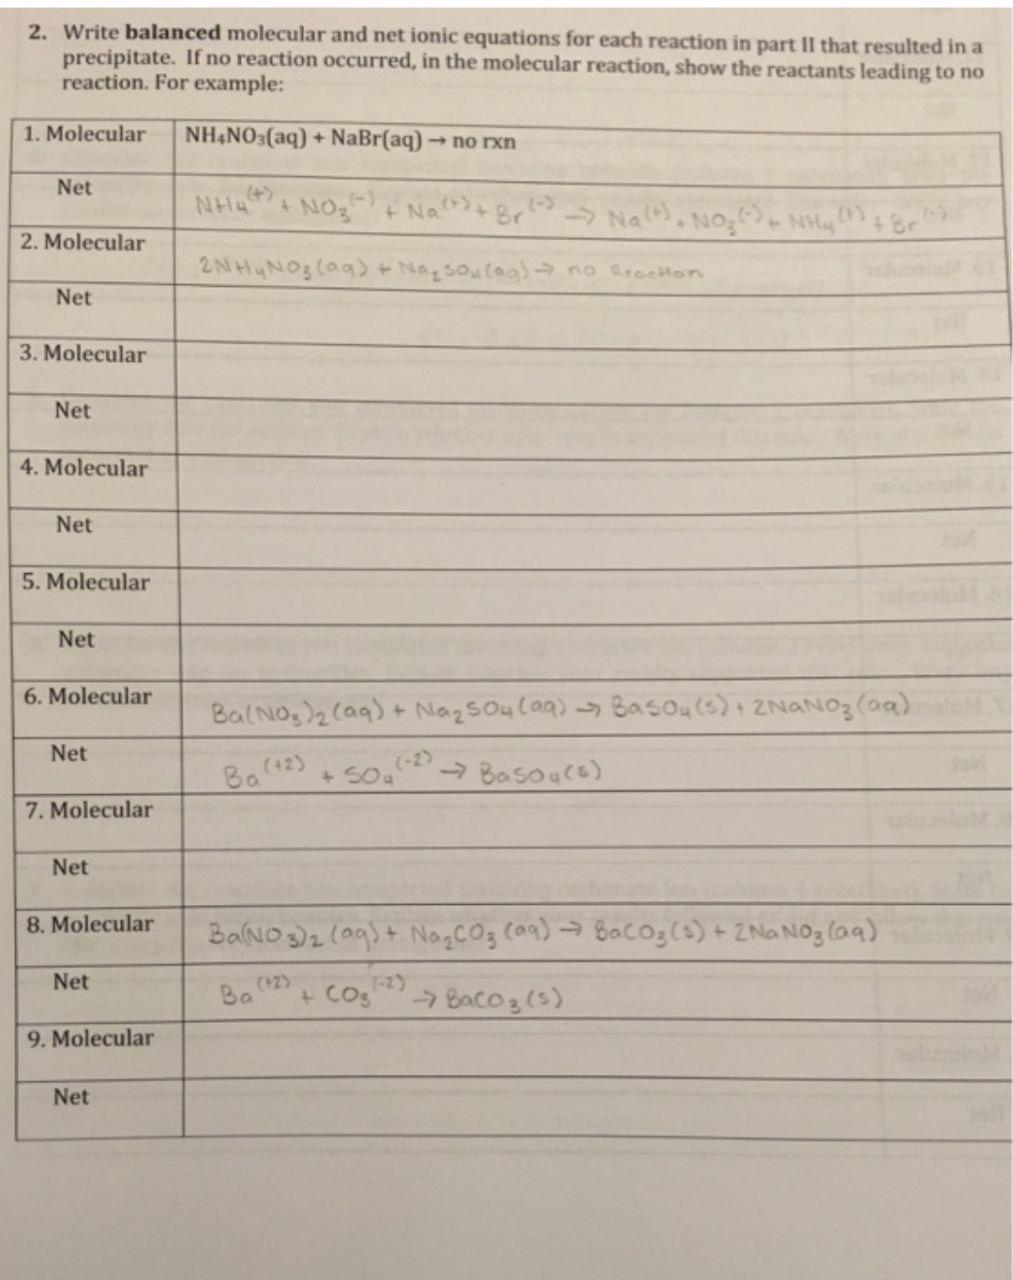 2. Write balanced molecular and net ionic equations for each reaction in part II that resulted in a
precipitate. If no reaction occurred, in the molecular reaction, show the reactants leading to no
reaction. For example:
1. Molecular NH₄NO₃(aq) + NaBr(aq) → no rxn
Net NH₄⁽⁺⁾ + NO₃⁽⁻⁾ + Na⁽⁺⁾ + Br⁽⁻⁾ → Na⁽⁺⁾ + NO₃⁽⁻⁾ + NH₄⁽⁺⁾ + Br⁽⁻⁾
2. Molecular 2NH₄NO₃(aq) + Na₂SO₄(aq) → no Reaction
Net
3. Molecular
Net
4. Molecular
Net
5. Molecular
Net
6. Molecular Ba(NO₃)₂(aq) + Na₂SO₄(aq) → BaSO₄(s) + 2NaNO₃(aq)
Net Ba⁽⁺²⁾ + SO₄⁽⁻²⁾ → BaSO₄(s)
7. Molecular
Net
8. Molecular Ba(NO₃)₂(aq) + Na₂CO₃(aq) → BaCO₃(s) + 2NaNO₃(aq)
Net Ba⁽⁺²⁾ + CO₃⁽⁻²⁾ → BaCO₃(s)
9. Molecular
Net